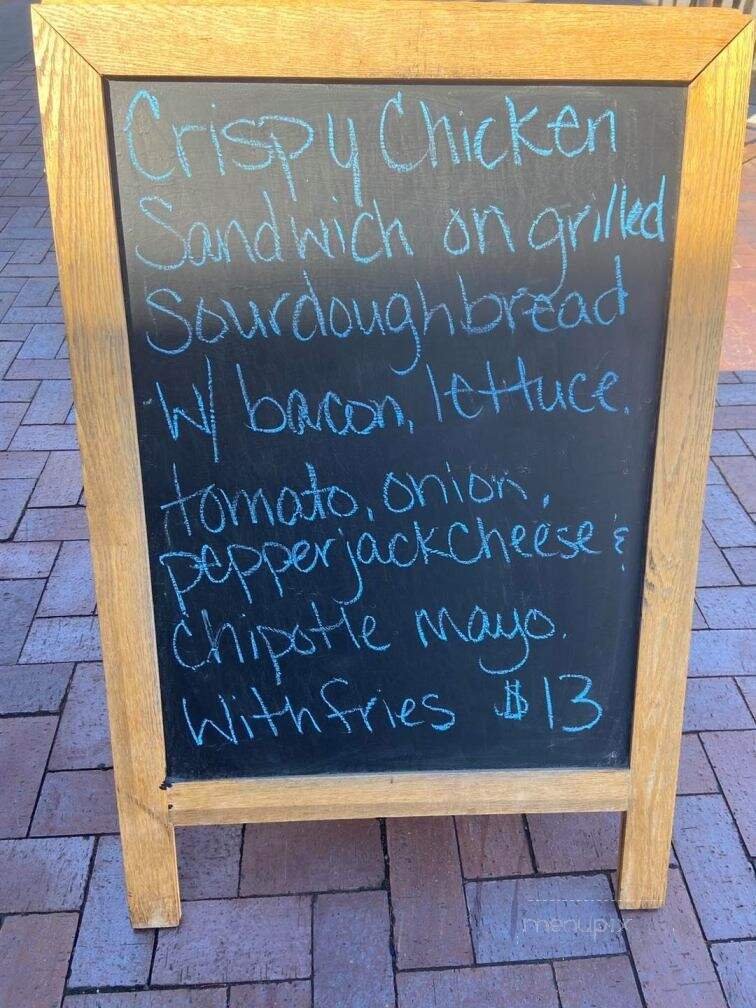 Crispy Chicken
Sandwich on grilled
Sourdough bread
W/ bacon, lettuce,
tomato, onion,
pepperjack cheese &
Chipotle Mayo.
With fries $13
menupix